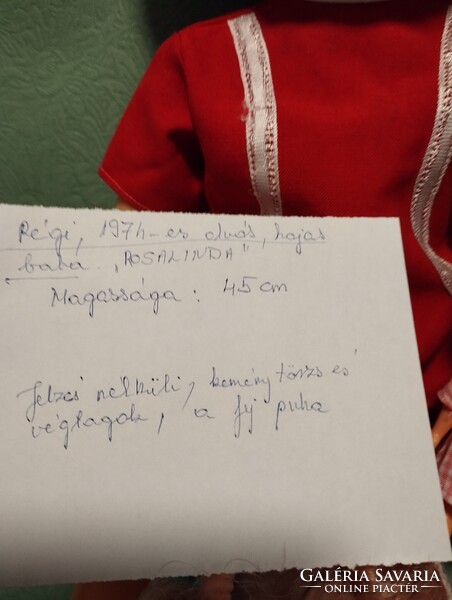 Régi, 1974-es alvós, hajas
baba "ROSALINDA"
Magassága: 45 cm
Jelzés nélküli, kemény törzs és
végtagok, a fej puha
GALÉRIA SAVARIA
ONLINE PIACTÉR